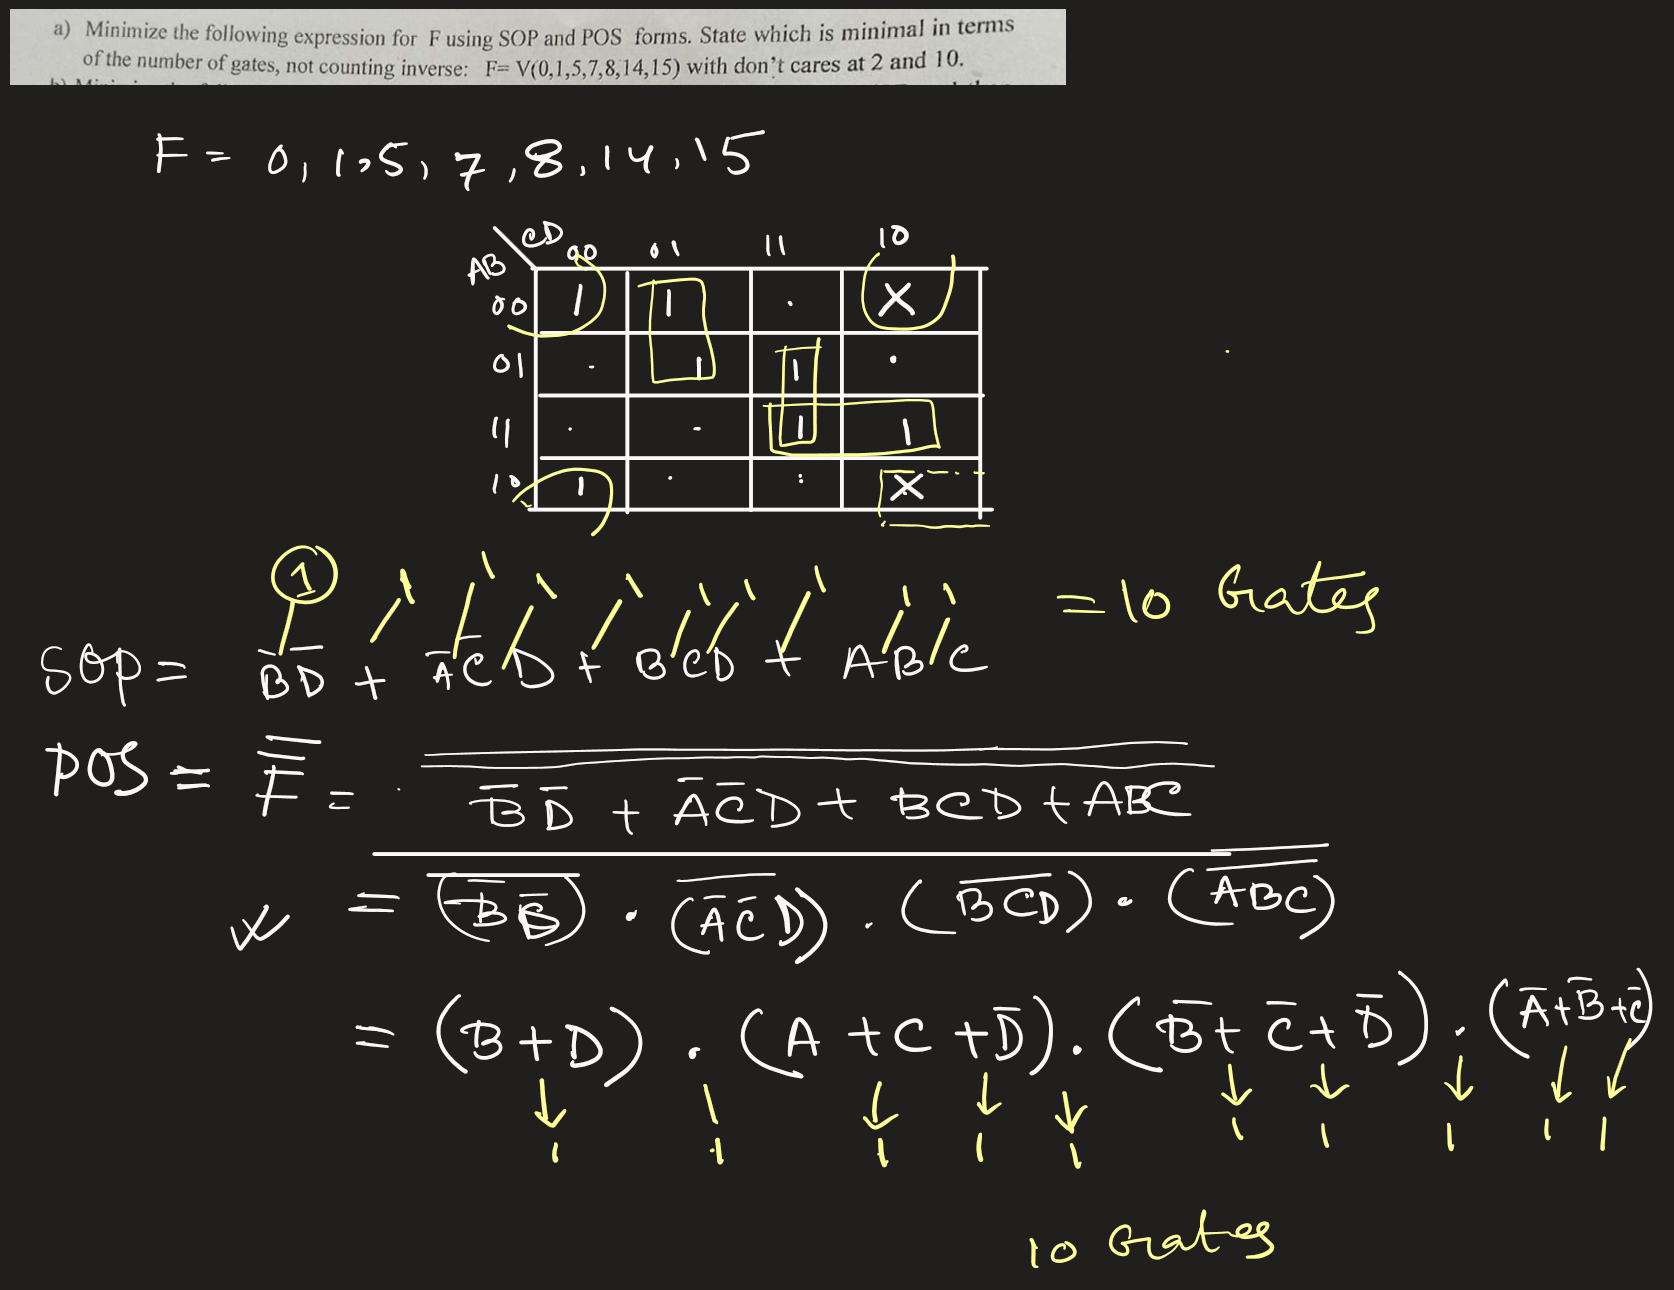 a) Minimize the following expression for F using SOP and POS forms. State which is minimal in terms
of the number of gates, not counting inverse: F= V(0,1,5,7,8,14,15) with don't cares at 2 and 10.
F = 0, 1, 5, 7, 8, 14, 15
CD 00 01 11 10
AB
00 1 1 . X
01 . 1 1 .
11 . - 1 1
10 1 . : X
1 1 1 1 1 1 1 1 1 1 = 10 Gates
SOP = B̅D̅ + A̅C̅D + BCD + ABC
POS = F̿ = B̅D̅ + A̅C̅D + BCD + ABC
= (B̅D̅) . (A̅C̅D) . (BCD) . (ABC)
= (B+D) . (A+C+D̅) . (B̅+C̅+D̅) . (A̅+B̅+C̅)
1 1 1 1 1 1 1 1 1 1
10 Gates